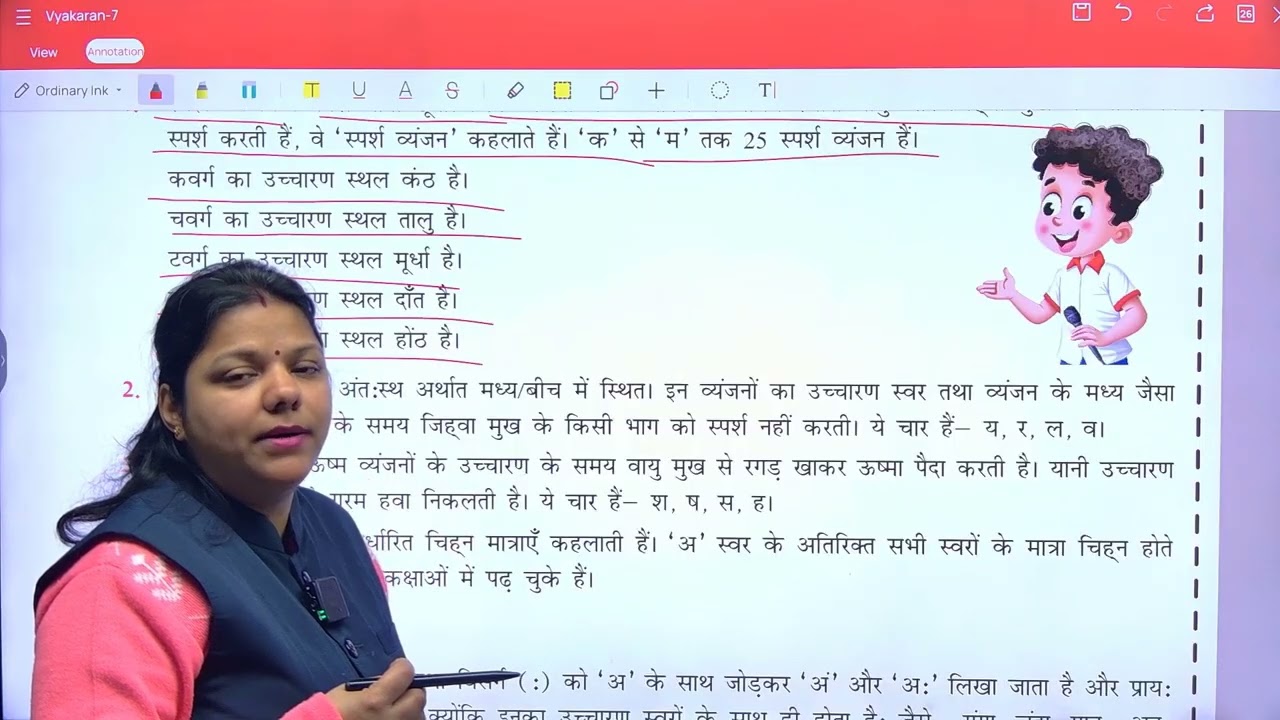 Vyakaran-7
26
View
Annotation
Ordinary Ink
T U A S T
स्पर्श करती हैं, वे ‘स्पर्श व्यंजन’ कहलाते हैं। ‘क’ से ‘म’ तक 25 स्पर्श व्यंजन हैं।
कवर्ग का उच्चारण स्थल कंठ है।
चवर्ग का उच्चारण स्थल तालु है।
टवर्ग का उच्चारण स्थल मूर्धा है।
स्थल दाँत है।
स्थल होंठ है।
2. अंत:स्थ अर्थात मध्य/बीच में स्थित। इन व्यंजनों का उच्चारण स्वर तथा व्यंजन के मध्य जैसा
के समय जिह्वा मुख के किसी भाग को स्पर्श नहीं करती। ये चार हैं– य, र, ल, व।
ऊष्म व्यंजनों के उच्चारण के समय वायु मुख से रगड़ खाकर ऊष्मा पैदा करती है। यानी उच्चारण
गरम हवा निकलती है। ये चार हैं– श, ष, स, ह।
चिह्न मात्राएँ कहलाती हैं। ‘अ’ स्वर के अतिरिक्त सभी स्वरों के मात्रा चिह्न होते
कक्षाओं में पढ़ चुके हैं।
(:) को ‘अ’ के साथ जोड़कर ‘अं’ और ‘अ:’ लिखा जाता है और प्राय:
क्योंकि इनका उच्चारण स्वरों के साथ ही होता है;